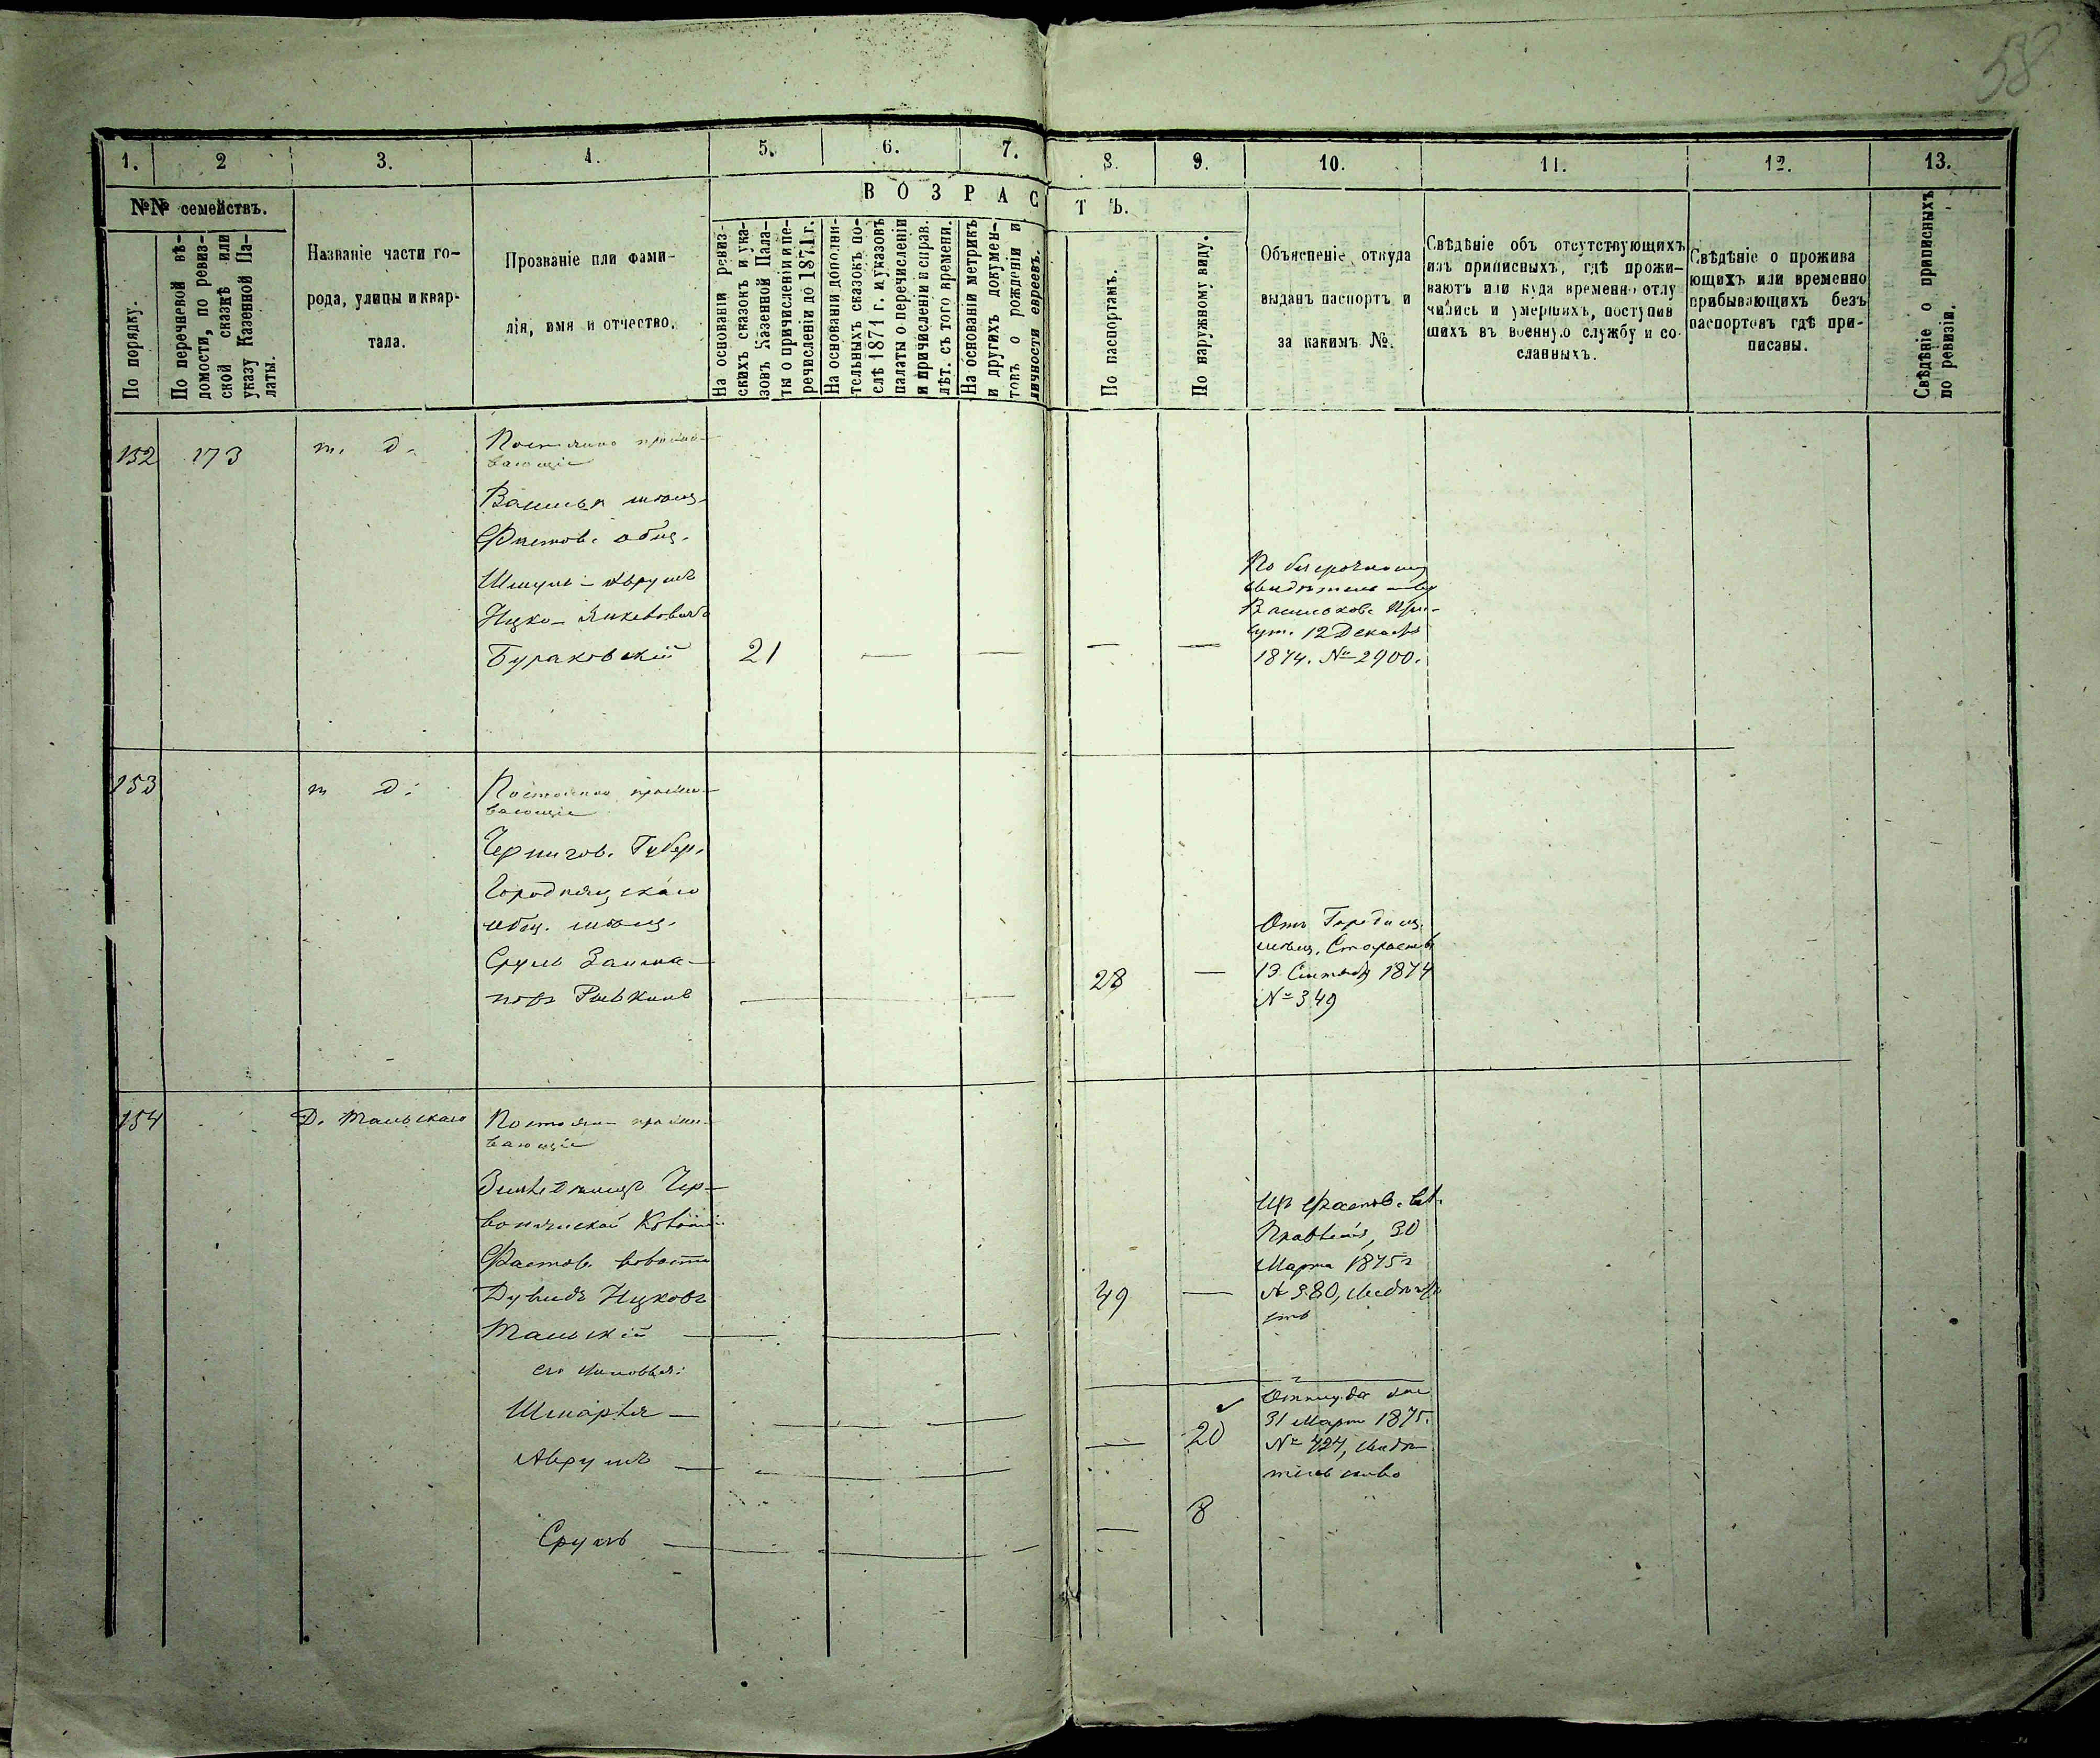 58
1. 2 3. 4. 5. 6. 7. 8. 9. 10. 11. 12. 13.
В О З Р А С Т Ъ.
№№ семействъ.
По порядку.
По перечневой вѣ-
домости, по ревиз-
ской сказкѣ или
указу Казенной Па-
латы.
Названіе части го-
рода, улицы и квар-
тала.
Прозваніе или фами-
лія, имя и отчество.
На основаніи ревиз-
скихъ сказокъ и ука-
зовъ Казенной Пала-
ты о причисленіи и пе-
речисленіи до 1871 г.
На основаніи дополни-
тельныхъ сказокъ по-
слѣ 1871 г. и указовъ
палаты о перечисленіи
и причисленіи и справ.
лѣт. съ того времени.
На основаніи метрикъ
и другихъ докумен-
товъ о рожденіи и
личности евреевъ.
По паспортамъ.
По наружному виду.
Объясненіе откуда
выданъ паспортъ и
за какимъ №.
Свѣдѣніе объ отсутствующихъ
изъ приписныхъ, гдѣ прожи-
ваютъ или куда временно отлу
чились и умершихъ, поступив
шихъ въ военную службу и со-
сланныхъ.
Свѣдѣніе о прожива
ющихъ или временно
прибывающихъ безъ
паспортовъ гдѣ при-
писаны.
Свѣдѣніе о приписныхъ
по ревизіи.
152 173 т. д. Постоянно прожи-
вающіе
Васильк. мѣщ.
Фастов. общ.
Шмуль-Аврумъ
Ицко-
Бураковскій 21
По безсрочному
свидѣтельству
Васильков.
12 Декаб.
1874. № 2900.
153 т д. Постоянно прожи-
вающіе
Чернигов. Губер.
Городницскаго
общ. мѣщ.
Сруль Залма-
новъ Рывкинъ 28
Отъ Городниц.
мѣщ. Старосты
13 Сентября 1874
№ 349
154 Д. Тальскаго Постоян- прожи-
вающіе
Земледѣлецъ Чер-
волянской Колоніи
Фастов. волости
Дувидъ Ицковъ 49
Тальскій
Изъ Фастов. вол.
Правленія, 30
Марта 1875 г
№ 380,
его сыновья:
Шмарья 20
Аврумъ
Сруль 8
Оттуда же
31 Марта 1875.
№ 424, свидѣ-
тельство